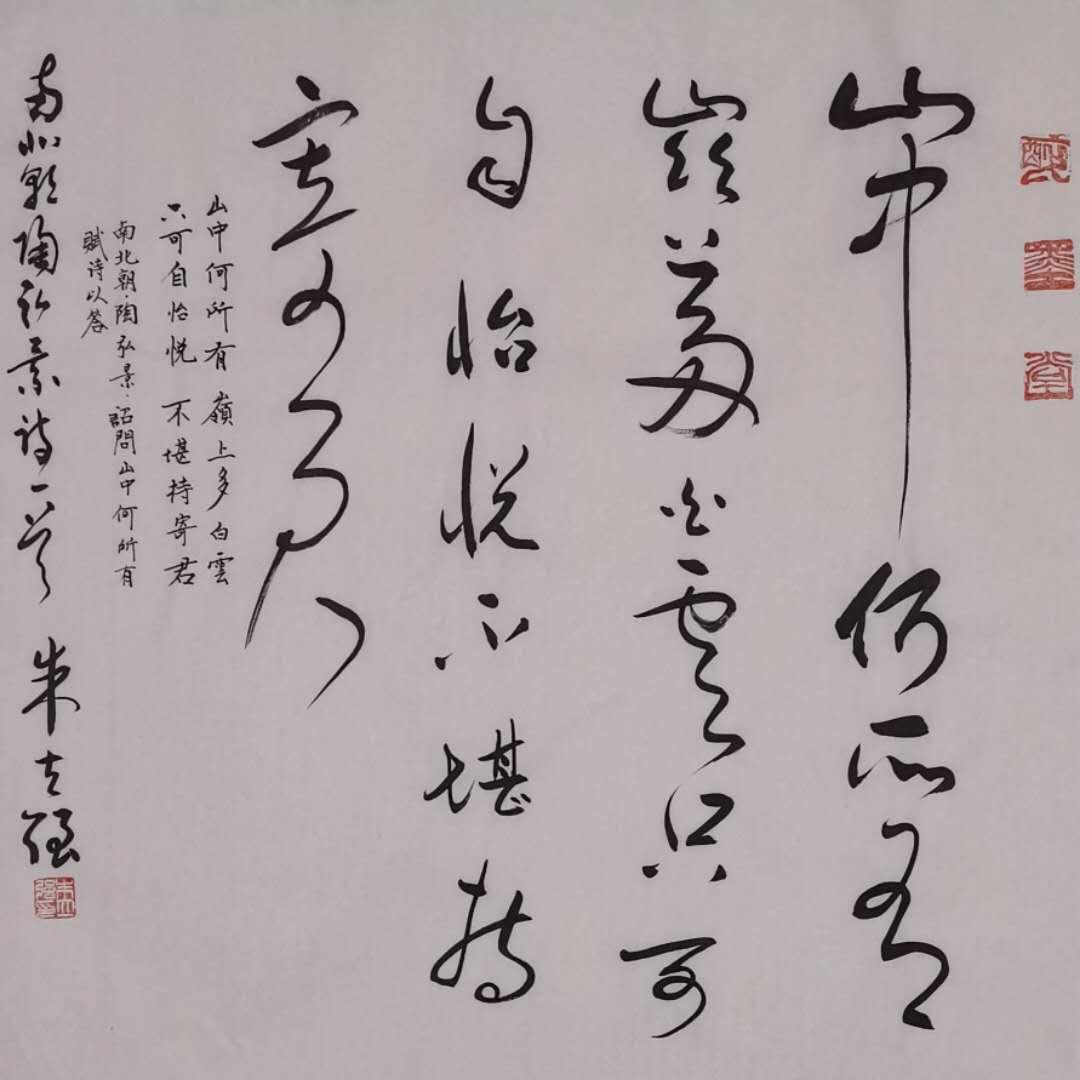 醉墨堂
山中何所有
嶺上多白雲只可
自怡悦不堪持
寄君
山中何所有 嶺上多白雲
只可自怡悦 不堪持寄君
南北朝·陶弘景·詔問山中何所有
賦诗以答
南北朝陶弘景诗一首 朱 强